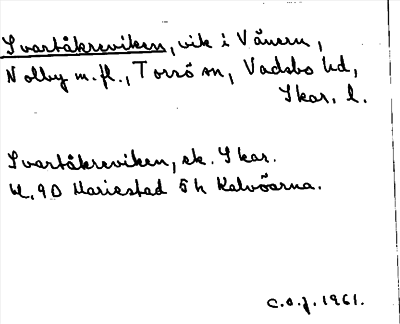 Svartåkreviken, vik i Vänern,
Nolby m.fl., Torsö sn, Vadsbo hd,
Skar. l.
Svartåkreviken, ek. Skar.
bl. 90 Mariestad 5 h Kalvöarna.
C.O.J. 1961.